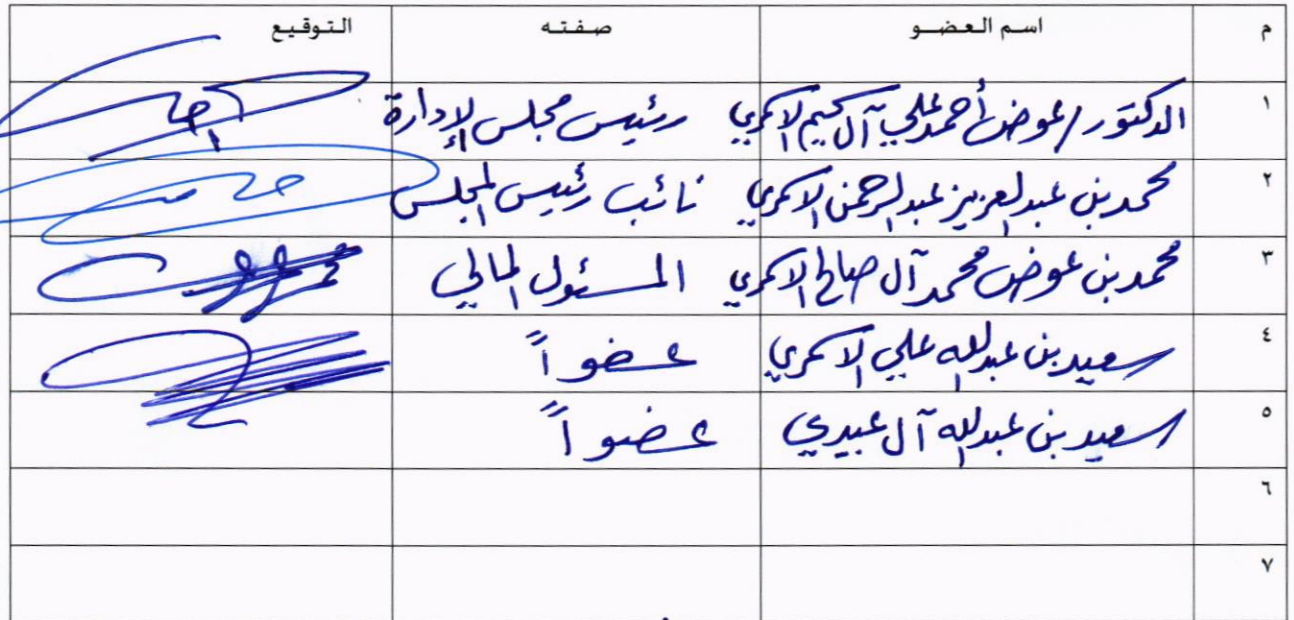 م اسم العضو صفته التوقيع
١ الدكتور / عوض أحمد علي آل حكيم الاسمري رئيس مجلس الإدارة
٢ محمد بن عبدالعزيز عبدالرحمن الاسمري نائب رئيس المجلس
٣ محمد بن عوض محمد آل صالح الاسمري المسئول المالي
٤ سعيد بن عبدالله علي الاسمري عضواً
٥ سعيد بن عبدالله آل عبيدي عضواً
٦
٧